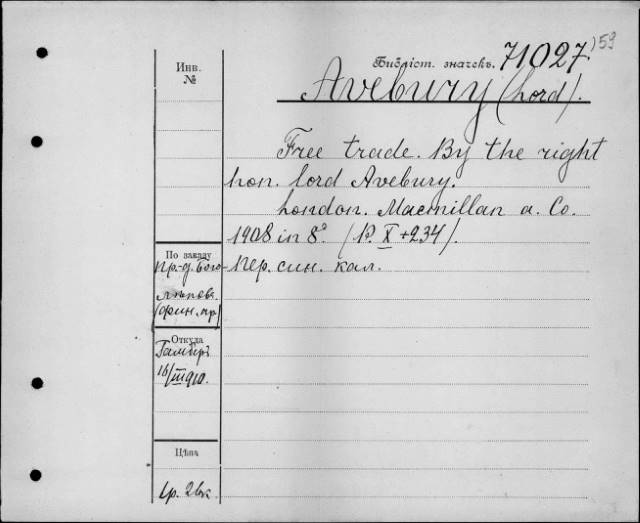 Инв. №
Библіот. значекъ. 71027
159
Avebury (Lord).
Free trade. By the right
hon. lord Avebury.
London. Macmillan a. Co.
1908 in 8°. (P. X+234).
Пер. син. кал.
По заказу
Пр.-д. Бого-
лѣпов.
(фин. пр.)
Откуда
16/III 910.
Цѣна